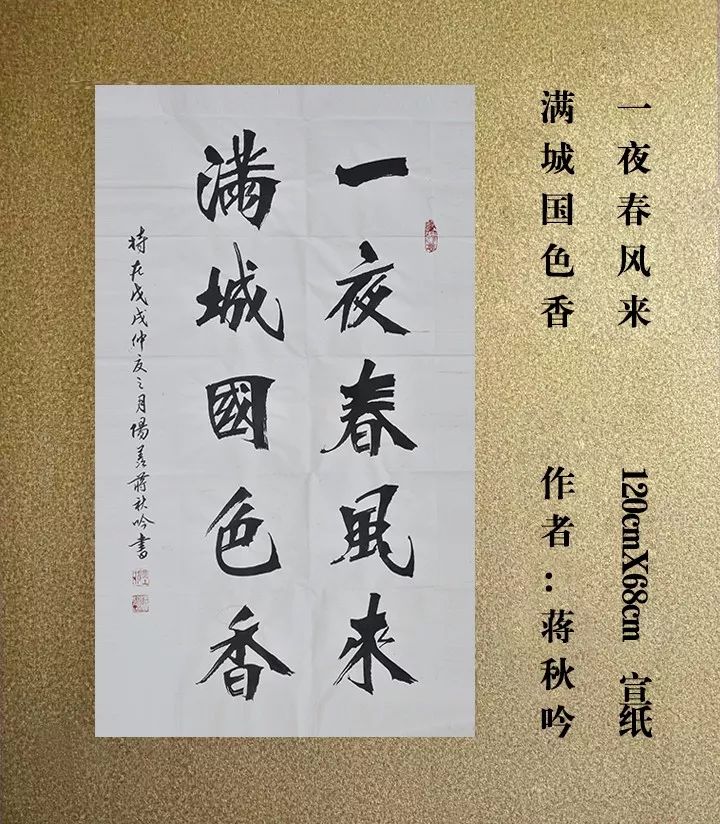 一夜春風來
滿城國色香
時在戊戌仲夏之月陽羨蔣秋吟書
一夜春风来
满城国色香
120cmX68cm 宣纸
作者：蒋秋吟